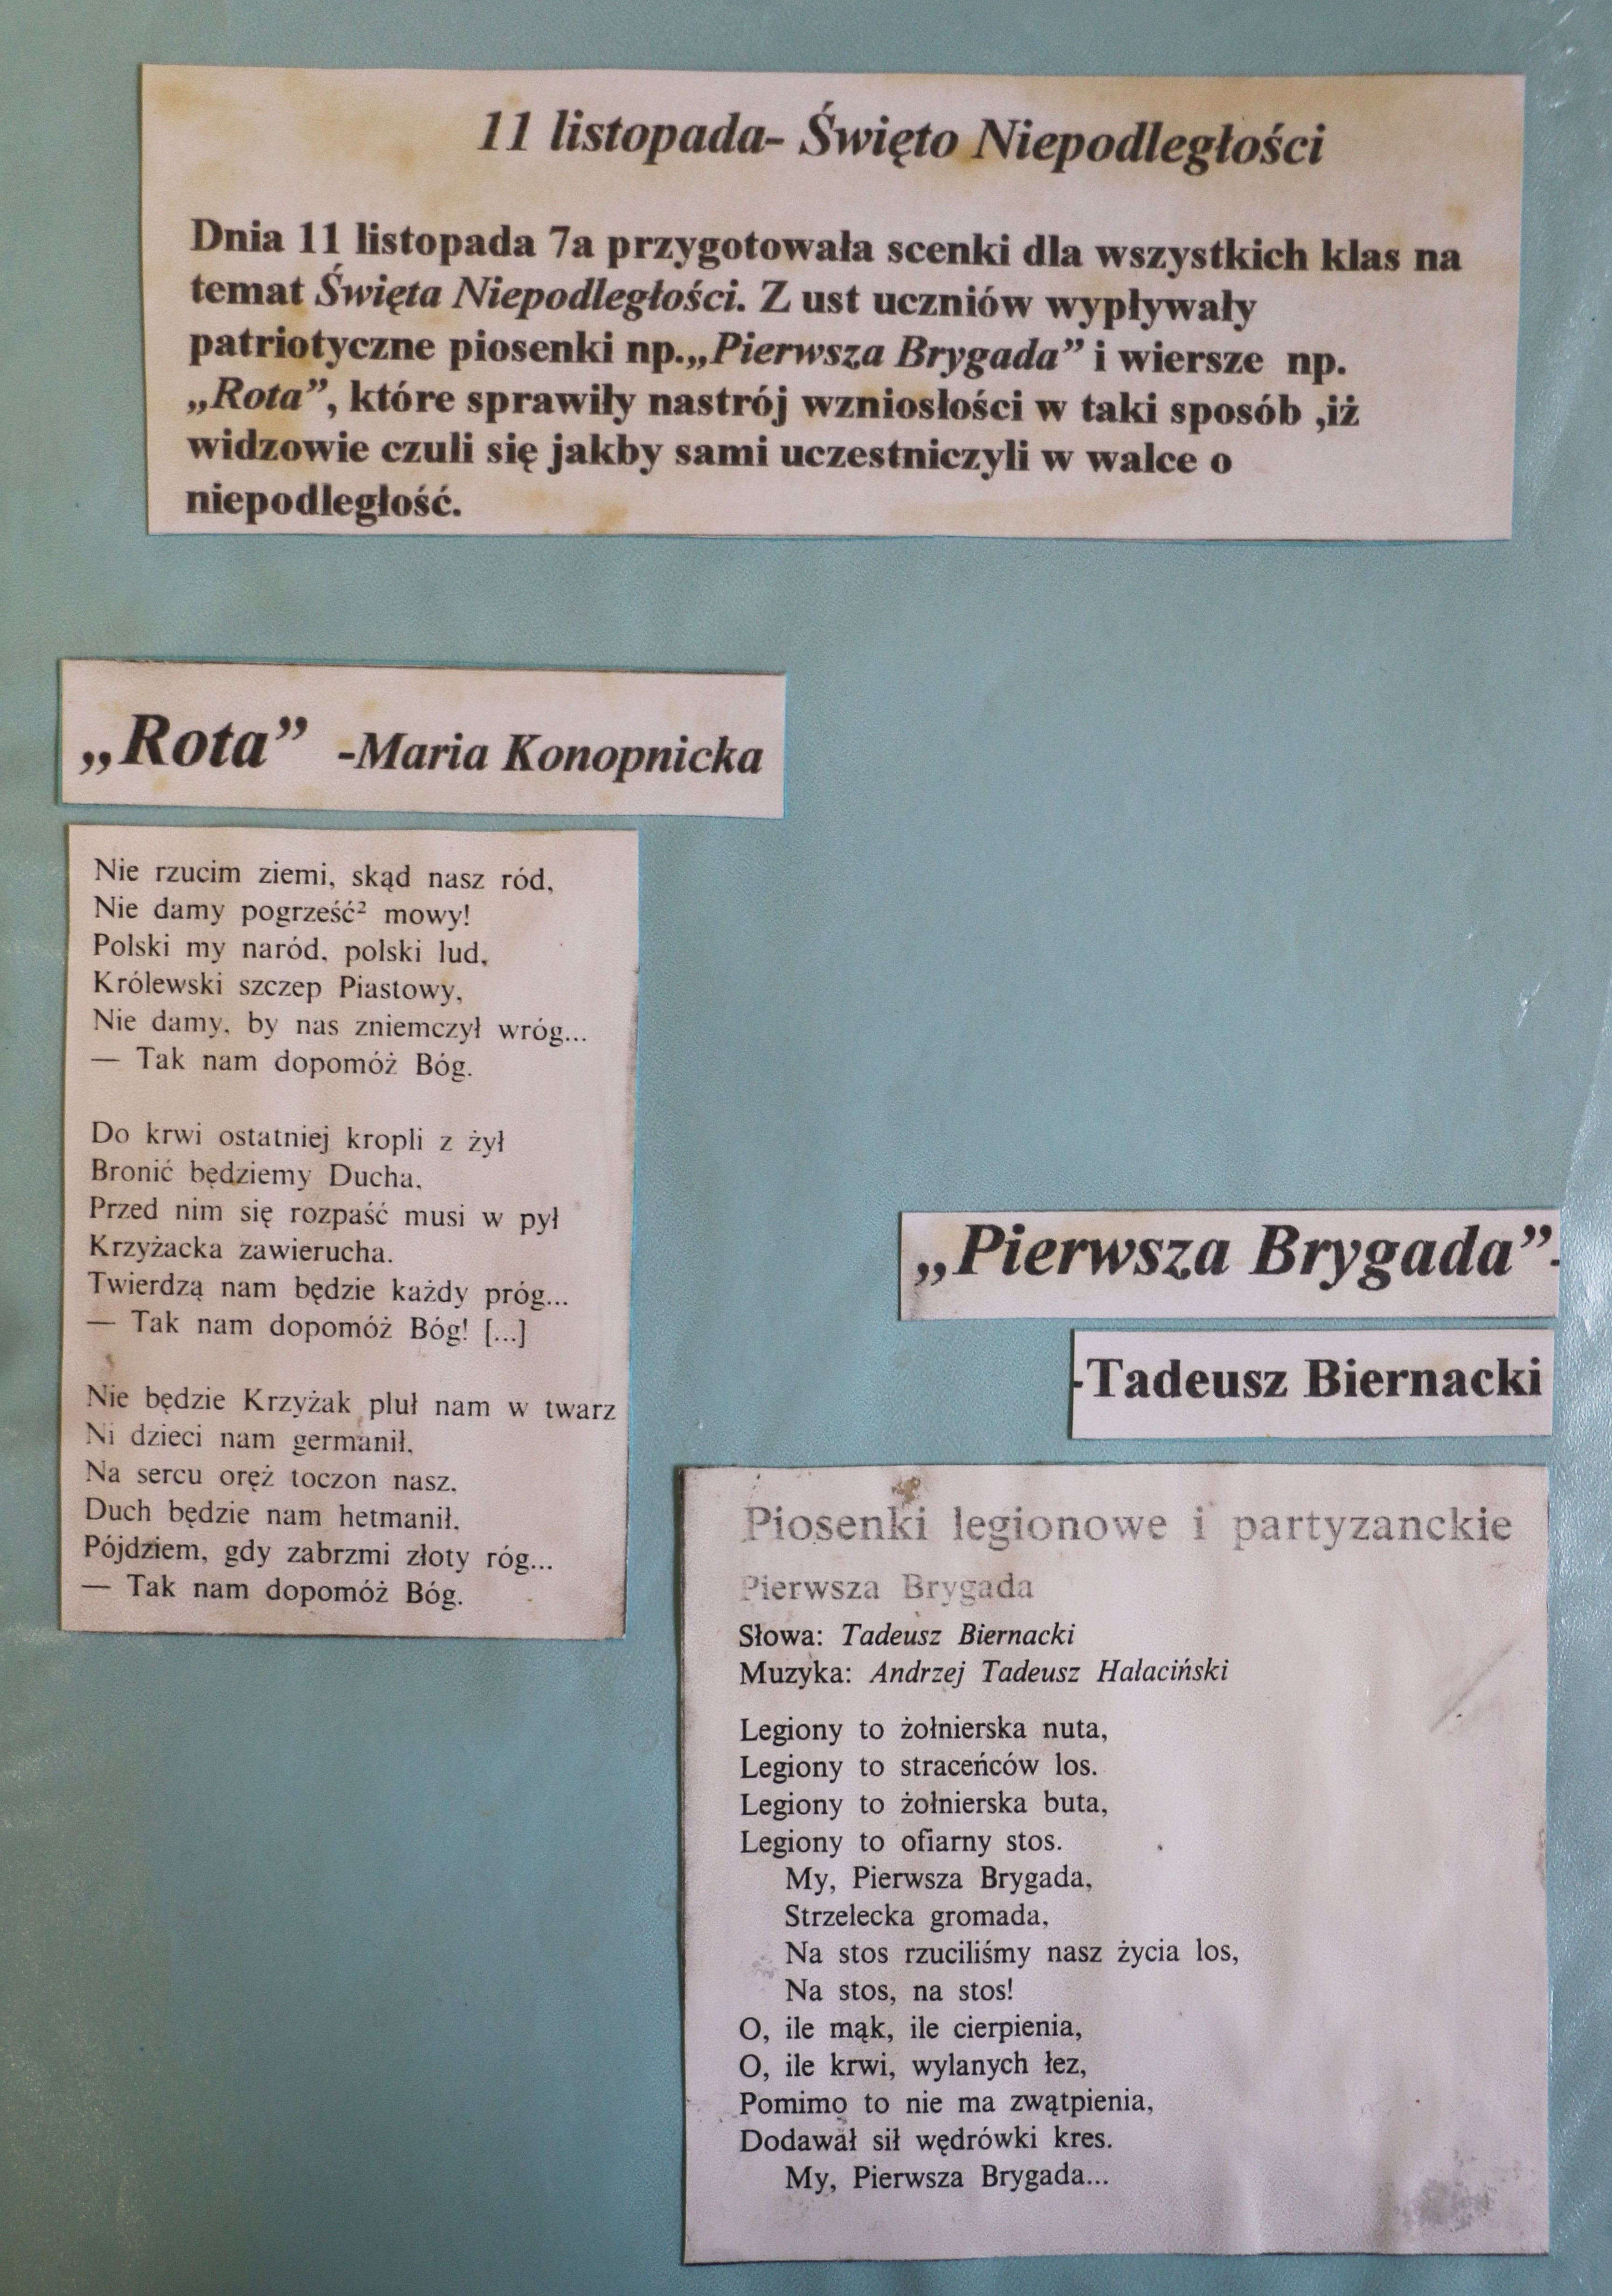 11 listopada- Święto Niepodległości
Dnia 11 listopada 7a przygotowała scenki dla wszystkich klas na
temat Święta Niepodległości. Z ust uczniów wypływały
patriotyczne piosenki np.„Pierwsza Brygada” i wiersze np.
„Rota”, które sprawiły nastrój wzniosłości w taki sposób ,iż
widzowie czuli się jakby sami uczestniczyli w walce o
niepodległość.
„Rota” -Maria Konopnicka
Nie rzucim ziemi, skąd nasz ród,
Nie damy pogrześć² mowy!
Polski my naród, polski lud,
Królewski szczep Piastowy,
Nie damy, by nas zniemczył wróg...
— Tak nam dopomóż Bóg.
Do krwi ostatniej kropli z żył
Bronić będziemy Ducha,
Przed nim się rozpaść musi w pył
Krzyżacka zawierucha.
Twierdzą nam będzie każdy próg...
— Tak nam dopomóż Bóg! [...]
Nie będzie Krzyżak pluł nam w twarz
Ni dzieci nam germanił,
Na sercu oręż toczon nasz,
Duch będzie nam hetmanił,
Pójdziem, gdy zabrzmi złoty róg...
— Tak nam dopomóż Bóg.
„Pierwsza Brygada”-
-Tadeusz Biernacki
Piosenki legionowe i partyzanckie
Pierwsza Brygada
Słowa: Tadeusz Biernacki
Muzyka: Andrzej Tadeusz Hałaciński
Legiony to żołnierska nuta,
Legiony to straceńców los.
Legiony to żołnierska buta,
Legiony to ofiarny stos.
My, Pierwsza Brygada,
Strzelecka gromada,
Na stos rzuciliśmy nasz życia los,
Na stos, na stos!
O, ile mąk, ile cierpienia,
O, ile krwi, wylanych łez,
Pomimo to nie ma zwątpienia,
Dodawał sił wędrówki kres.
My, Pierwsza Brygada...